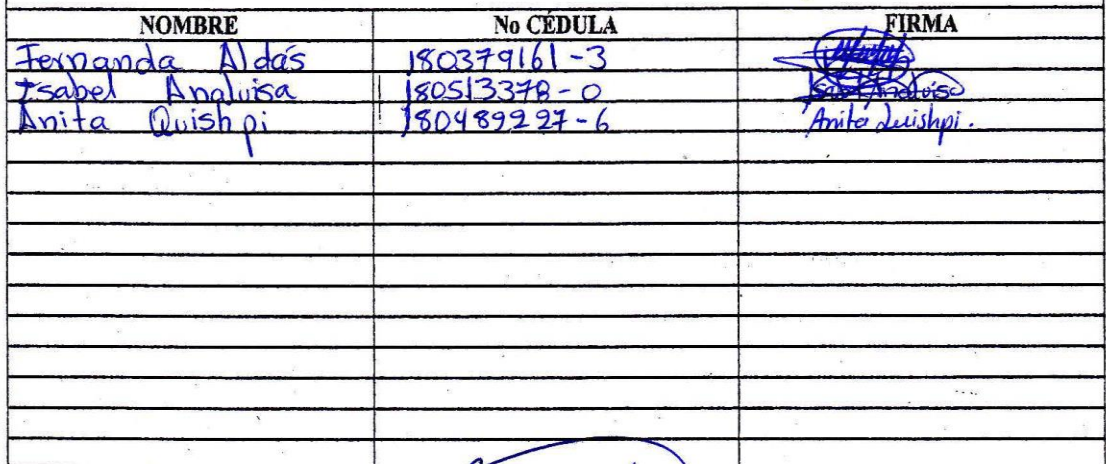 NOMBRE No CÉDULA FIRMA
Fernanda Aldás 180379161-3
Isabel Analuisa 180513378-0 Isabel Analuisa
Anita Quishpi 180489227-6 Anita Quishpi.